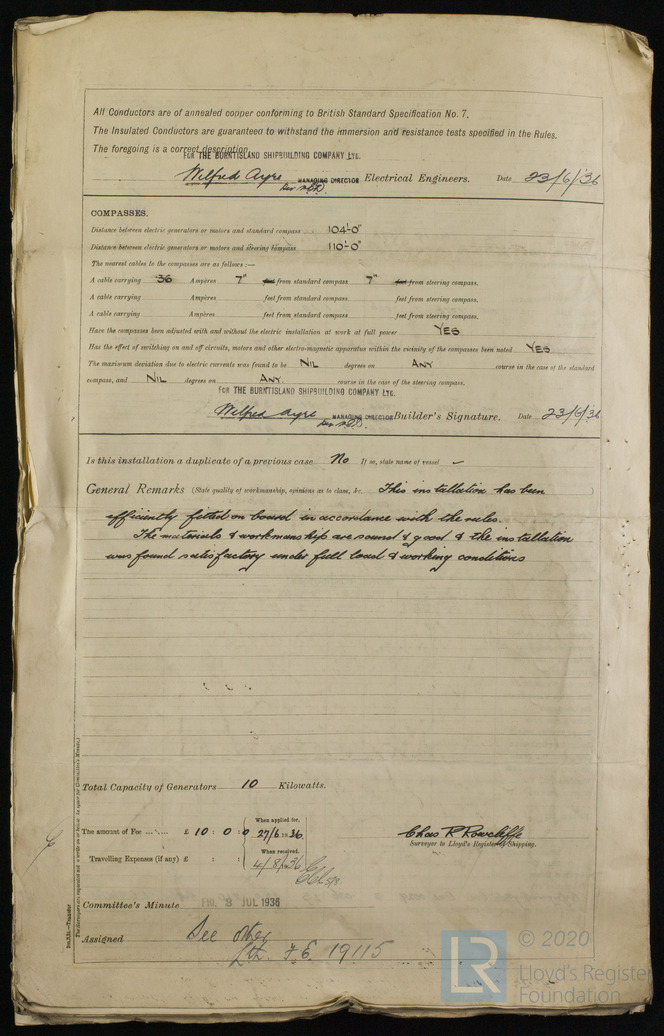 All Conductors are of annealed copper conforming to British Standard Specification No. 7.
The Insulated Conductors are guaranteed to withstand the immersion and resistance tests specified in the Rules.
The foregoing is a correct description,
FOR THE BURNTISLAND SHIPBUILDING COMPANY LTD.
Wilfred Ayre MANAGING DIRECTOR Electrical Engineers. Date 23/6/36
COMPASSES.
Distance between electric generators or motors and standard compass 104'-0"
Distance between electric generators or motors and steering compass 110'-0"
The nearest cables to the compasses are as follows:—
A cable carrying 36 Ampères 7" feet from standard compass 7" feet from steering compass.
A cable carrying Ampères feet from standard compass feet from steering compass.
A cable carrying Ampères feet from standard compass feet from steering compass.
Have the compasses been adjusted with and without the electric installation at work at full power YES
Has the effect of switching on and off circuits, motors and other electro-magnetic apparatus within the vicinity of the compasses been noted YES
The maximum deviation due to electric currents was found to be NIL degrees on ANY course in the case of the standard
compass, and NIL degrees on ANY course in the case of the steering compass.
FOR THE BURNTISLAND SHIPBUILDING COMPANY LTD.
Wilfred Ayre MANAGING DIRECTOR Builder's Signature. Date 23/6/36
Is this installation a duplicate of a previous case No If so, state name of vessel —
General Remarks (State quality of workmanship, opinions as to class, &c. This installation has been
efficiently fitted on board in accordance with the rules.
The materials & workmanship are sound & good & the installation
was found satisfactory under full load & working conditions
Total Capacity of Generators 10 Kilowatts.
The amount of Fee £ 10 : 0 : 0 When applied for, 27/6 1936.
Travelling Expenses (if any) £ : : When received, 4/8/36
Chas R Rowcliffe
Surveyor to Lloyd's Register of Shipping.
Committee's Minute FRI. 3 JUL 1936
Assigned See other
F.E. 19115
(The Surveyors are requested not to write on or below the space for Committee's Minute.)
—Transfer
LR
© 2020
Lloyd's Register
Foundation